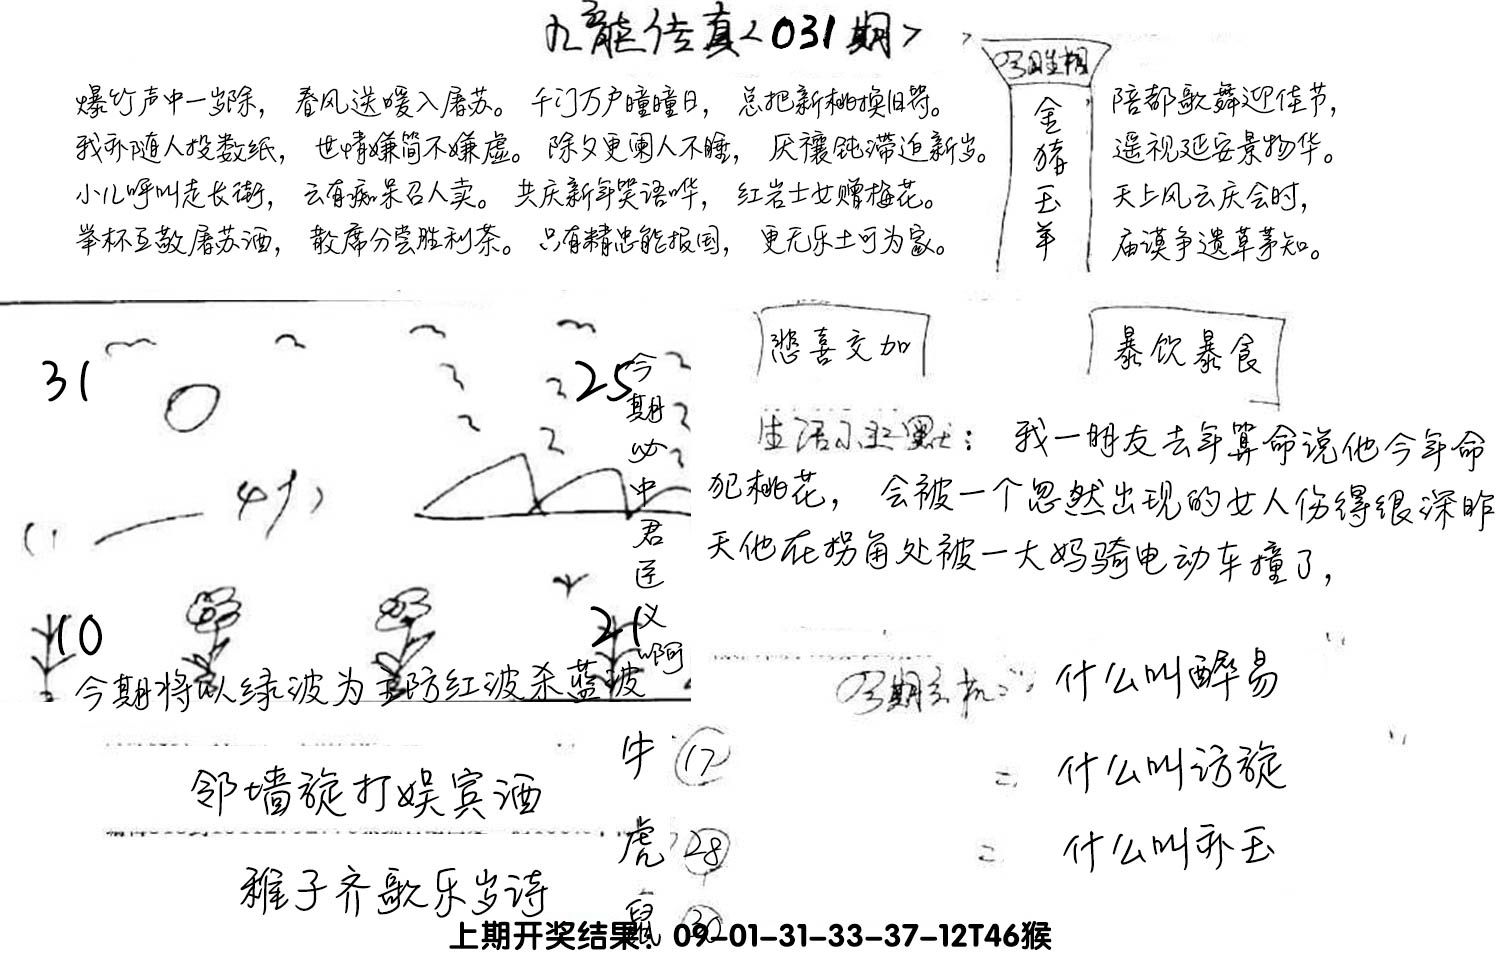 九龙传真<031期>
爆竹声中一岁除，春风送暖入屠苏。千门万户曈曈日，总把新桃换旧符。
我亦随人投数纸，世情嫌简不嫌虚。除夕更阑人不睡，厌禳钝滞迫新岁。
小儿呼叫走长街，云有痴呆召人卖。共庆新年笑语哗，红岩士女赠梅花。
举杯互敬屠苏酒，散席分尝胜利茶。只有精忠能报国，更无乐土可为家。
金猪玉羊
陪都歌舞迎佳节，
遥视延安景物华。
天上风云庆会时，
庙谟争遗草茅知。
31
25
10
21
今期必中君莲义啊
今期将以绿波为主防红波杀蓝波
悲喜交加
暴饮暴食
生活小幽默：我一朋友去年算命说他今年命
犯桃花，会被一个忽然出现的女人伤得很深昨
天他在拐角处被一大妈骑电动车撞了，
什么叫醉易
二：什么叫访旋
什么叫亦玉
牛 17
虎 28
鼠 30
邻墙旋打娱宾酒
稚子齐歌乐岁诗
上期开奖结果：09-01-31-33-37-12T46猴